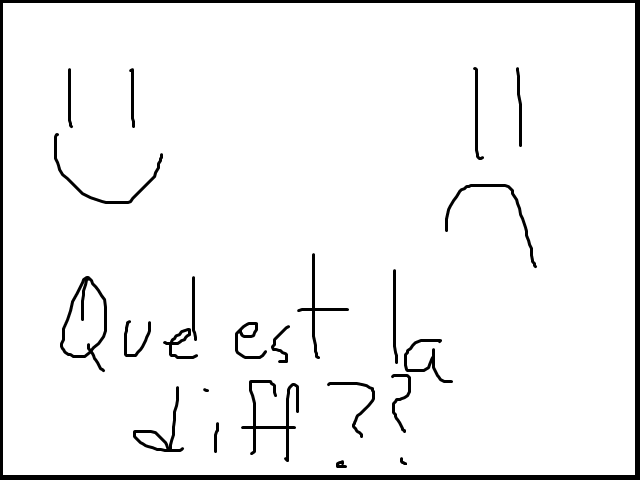 Qud est la
diff??